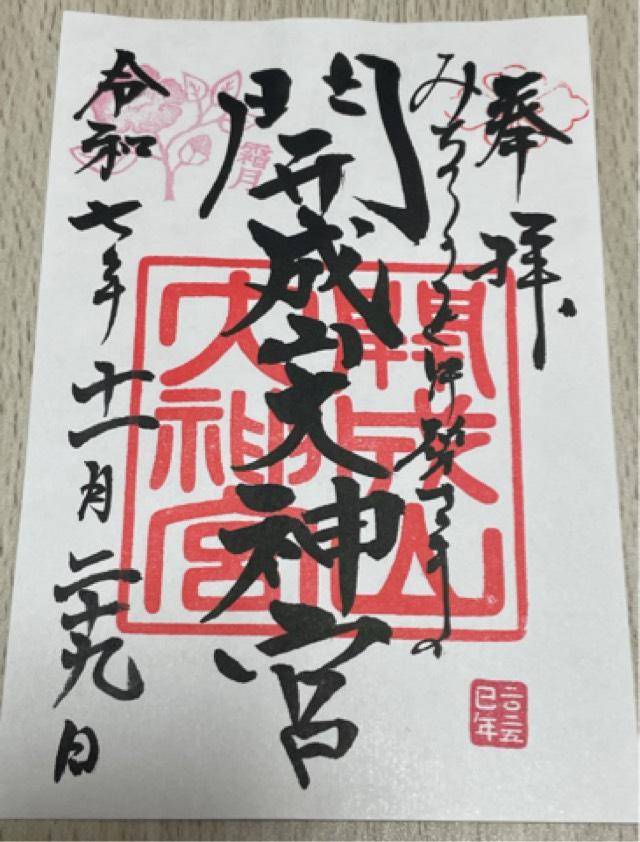 奉拝
みちのくのお伊勢さまの
開成山大神宮
令和七年十一月二十九日
霜月
開成山
大神宮
二〇二五
巳年